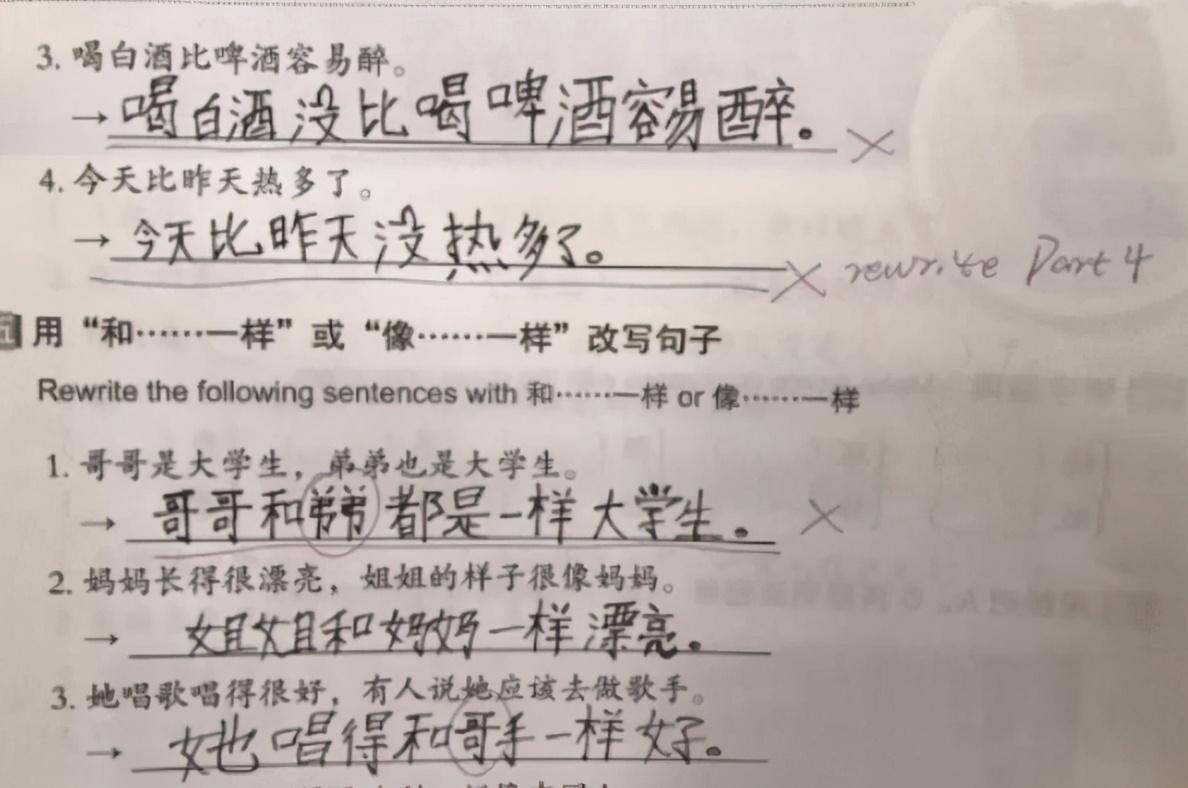 3. 喝白酒比啤酒容易醉。
→ 喝白酒没比喝啤酒容易醉。 ×
4. 今天比昨天热多了。
→ 今天比昨天没热多了。 × rewrite Part 4
用“和……一样”或“像……一样”改写句子
Rewrite the following sentences with 和……一样 or 像……一样
1. 哥哥是大学生，弟弟也是大学生。
→ 哥哥和弟弟都是一样大学生。 ×
2. 妈妈长得很漂亮，姐姐的样子很像妈妈。
→ 姐姐和妈妈一样漂亮。
3. 她唱歌唱得很好，有人说她应该去做歌手。
→ 她唱得和哥手一样好。